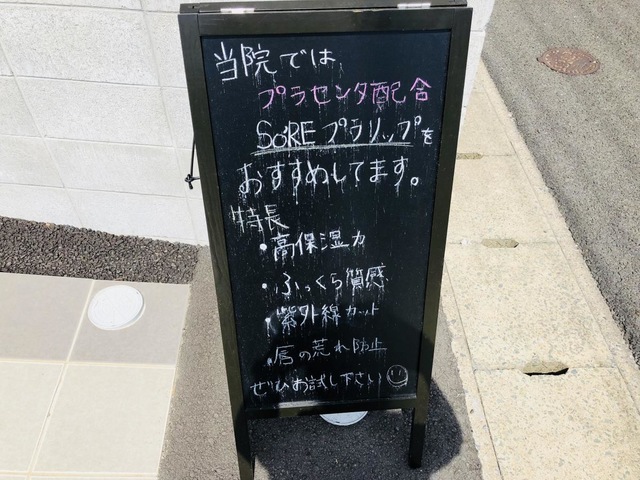 当院では
プラセンタ配合
SO'RE プラリップを
おすすめしてます。
特長
・高保湿力
・ふっくら質感
・紫外線カット
・唇の荒れ防止
ぜひお試し下さい